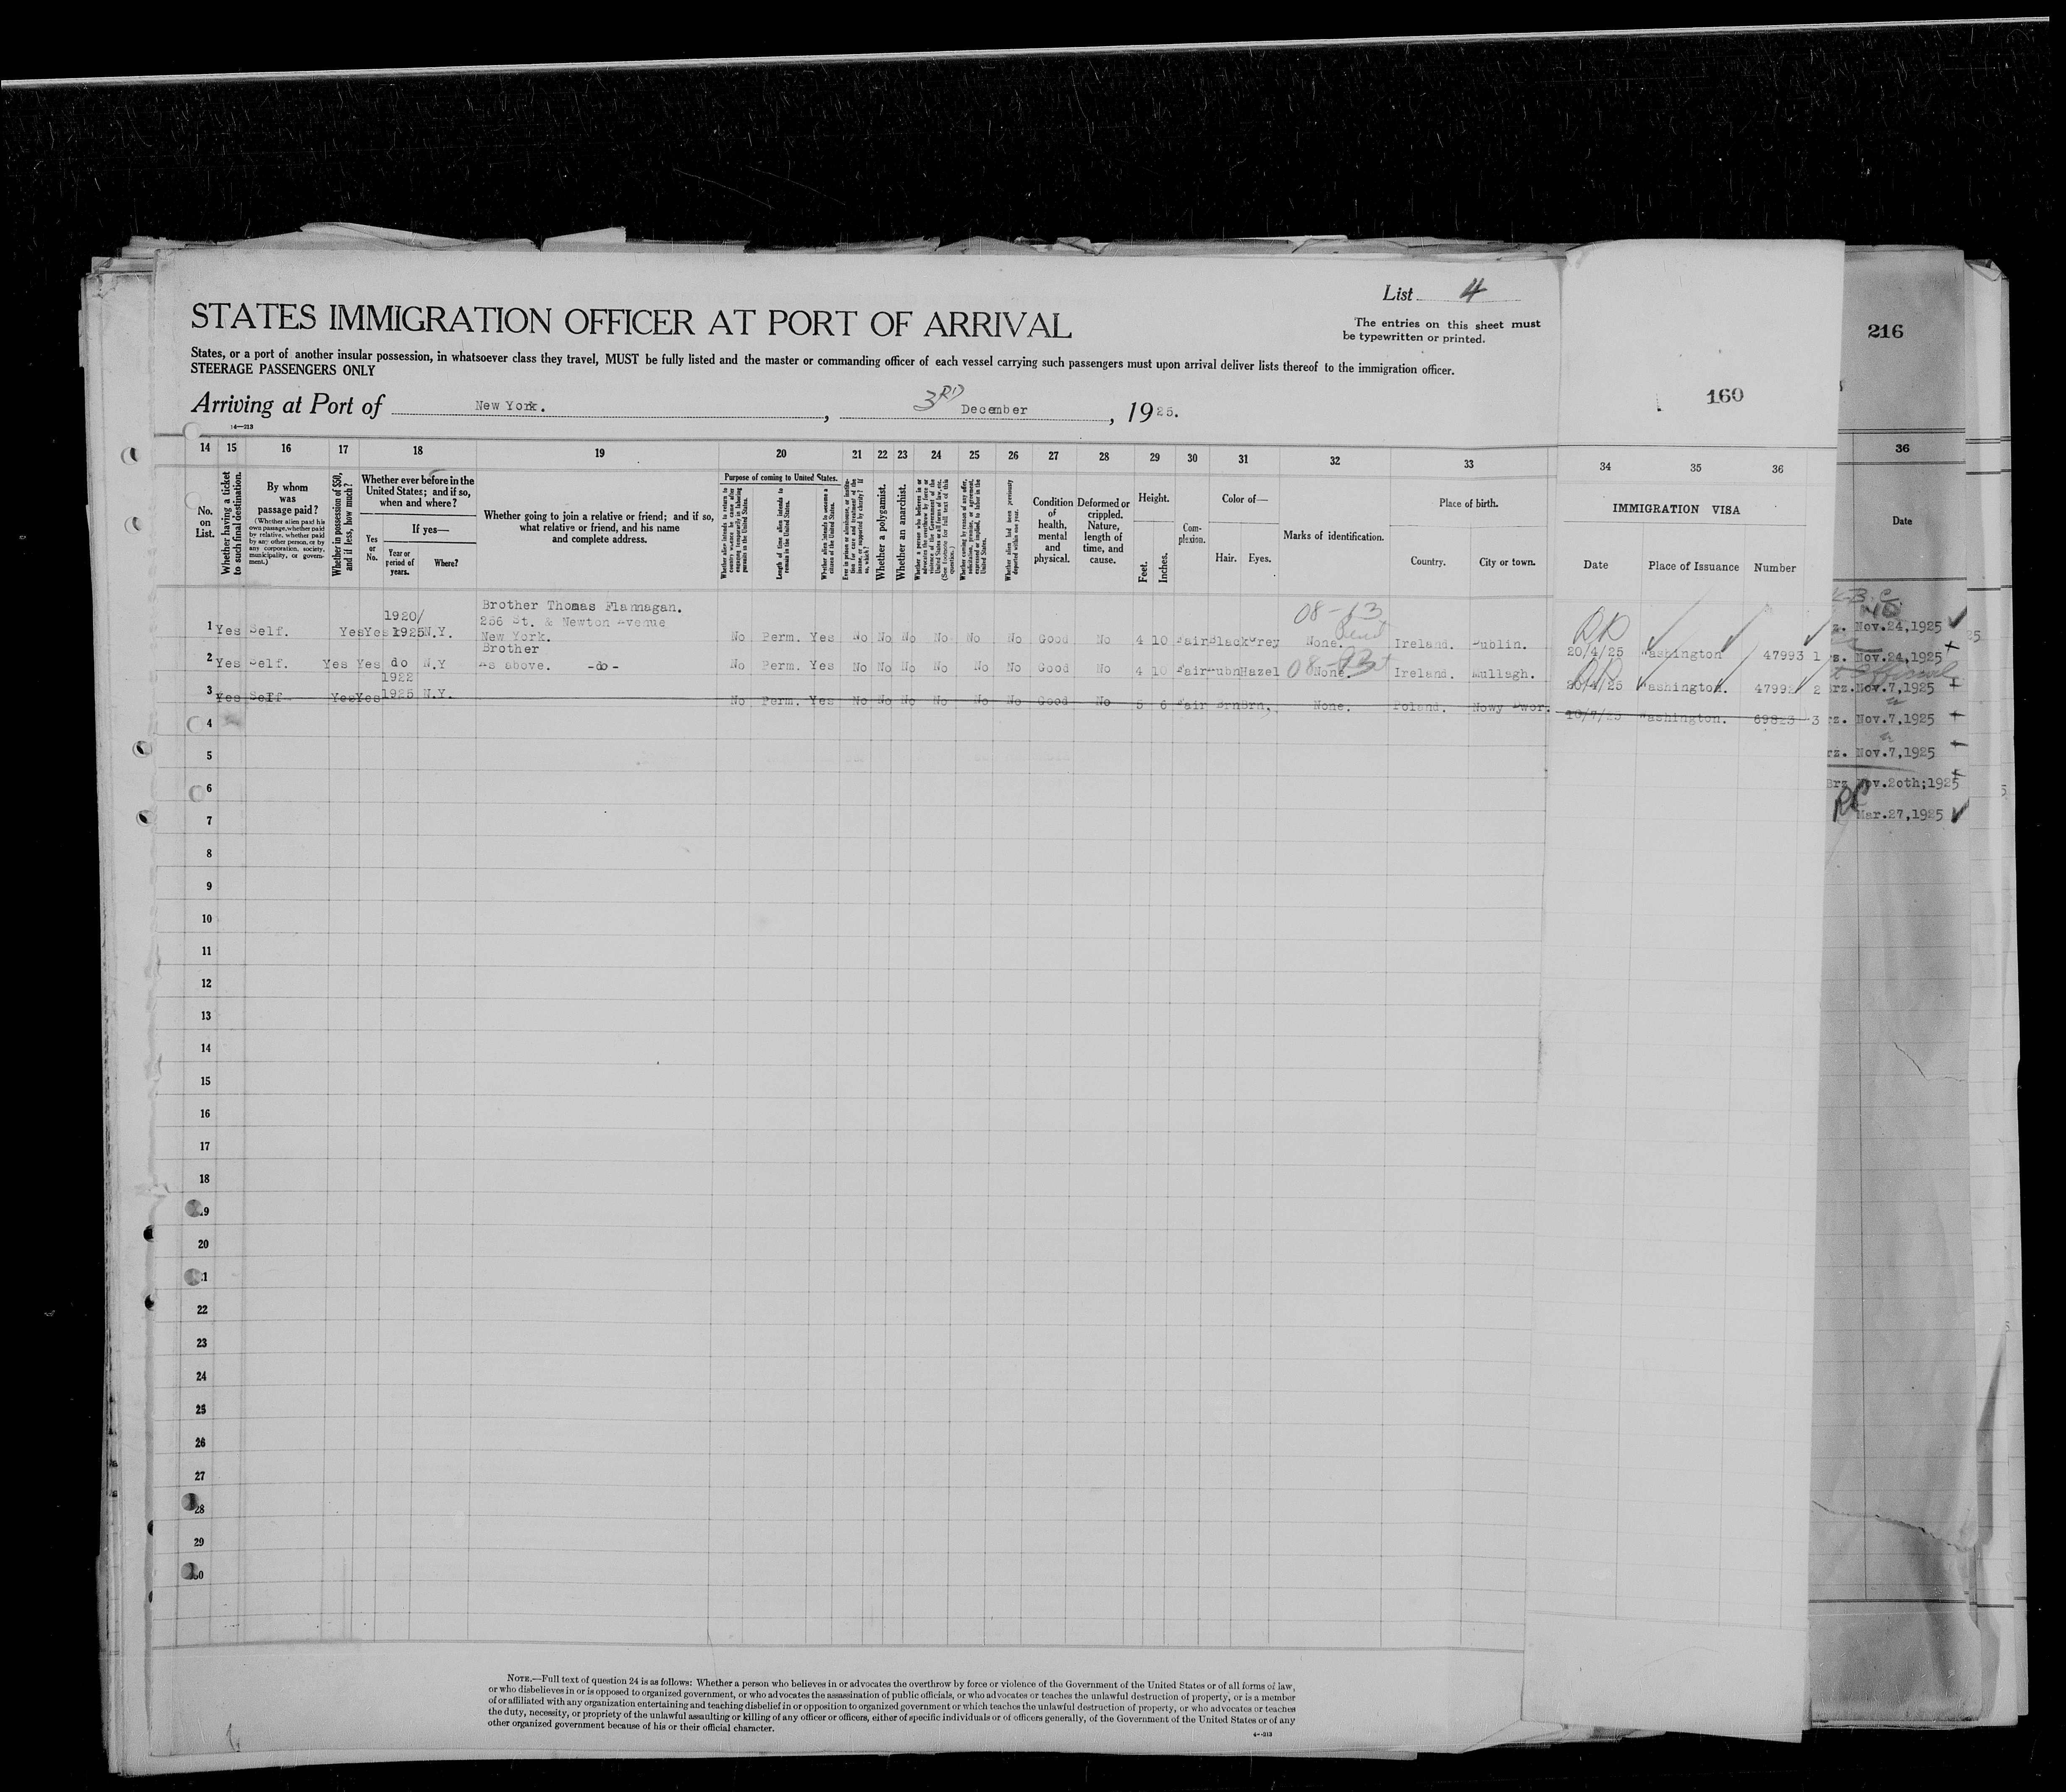 List 4
216
STATES IMMIGRATION OFFICER AT PORT OF ARRIVAL
The entries on this sheet must
be typewritten or printed.
States, or a port of another insular possession, in whatsoever class they travel, MUST be fully listed and the master or commanding officer of each vessel carrying such passengers must upon arrival deliver lists thereof to the immigration officer.
STEERAGE PASSENGERS ONLY
160
Arriving at Port of New York. , 3RD December , 1925.
14—213
14 15 16 17 18 19 20 21 22 23 24 25 26 27 28 29 30 31 32 33 34 35 36
36
No.
on
List.
Whether having a ticket
to such final destination.
By whom
was
passage paid?
(Whether alien paid his
own passage, whether paid
by relative, whether paid
by any other person, or by
any corporation, society,
municipality, or govern-
ment.)
Whether in possession of $50,
and if less, how much?
Whether ever before in the
United States; and if so,
when and where?
Yes
or
No.
If yes—
Year or
period of
years.
Where?
Whether going to join a relative or friend; and if so,
what relative or friend, and his name
and complete address.
Purpose of coming to United States.
Length of time alien intends to
remain in the United States.
Whether alien intends to become a
citizen of the United States.
Whether a polygamist.
Whether an anarchist.
Whether alien had been previously
deported within one year.
Condition
of
health,
mental
and
physical.
Deformed or
crippled.
Nature,
length of
time, and
cause.
Height.
Feet.
Inches.
Com-
plexion.
Color of—
Hair. Eyes.
Marks of identification.
Place of birth.
Country.
City or town.
IMMIGRATION VISA
Date
Place of Issuance
Number
Date
1 Yes Self. Yes Yes 1920/ 1925 N.Y. Brother Thomas Flannagan.
256 St. & Newton Avenue
New York. No Perm. Yes No No No No No No Good No 4 10 Fair Black Grey None. Ireland. Dublin. 20/4/25 Washington 47993 1
08-13
2 Yes Self. Yes Yes do N.Y Brother
As above. -do- No Perm. Yes No No No No No No Good No 4 10 Fair Aubn Hazel None. Ireland. Mullagh. 20/4/25 Washington. 47992 2
3 Yes Self Yes Yes 1922
1925 N.Y. No Perm. Yes No No No No No No Good No 5 6 Fair Brn Brn. None. Poland. Nowy Dwor. 10/7/25 Washington. 69823 3
4
5
6
7
8
9
10
11
12
13
14
15
16
17
18
19
20
21
22
23
24
25
26
27
28
29
30
rz. Nov.24,1925
rz. Nov.24,1925
rz. Nov.7,1925
rz. Nov.7,1925
rz. Nov.7,1925
Brz Nov.20th;1925
Mar.27,1925
NOTE.—Full text of question 24 is as follows: Whether a person who believes in or advocates the overthrow by force or violence of the Government of the United States or of all forms of law,
or who disbelieves in or is opposed to organized government, or who advocates the assassination of public officials, or who advocates or teaches the unlawful destruction of property, or is a member
of or affiliated with any organization entertaining and teaching disbelief in or opposition to organized government or which teaches the unlawful destruction of property, or who advocates or teaches
the duty, necessity, or propriety of the unlawful assaulting or killing of any officer or officers, either of specific individuals or of officers generally, of the Government of the United States or of any
other organized government because of his or their official character.